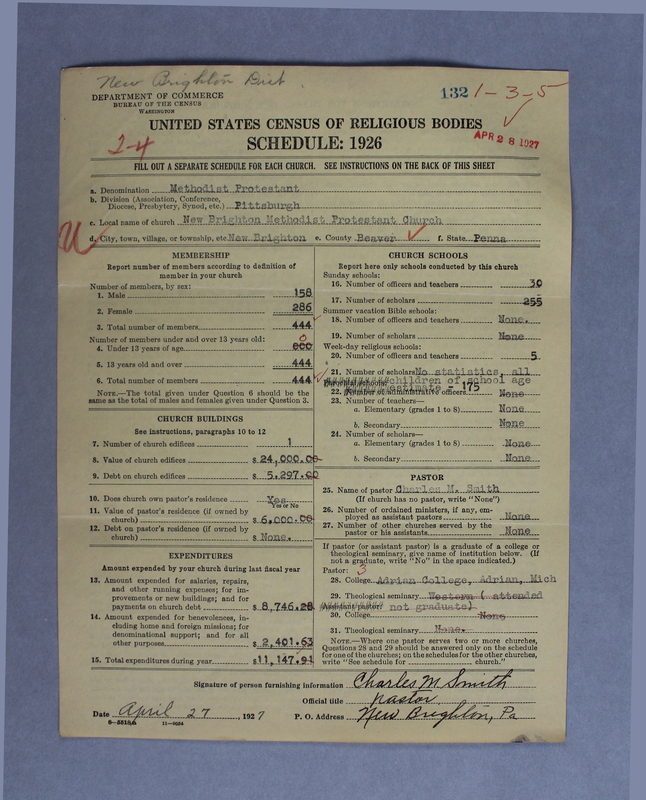 New Brighton Dist
DEPARTMENT OF COMMERCE
BUREAU OF THE CENSUS
WASHINGTON
132 1-3-5
UNITED STATES CENSUS OF RELIGIOUS BODIES
APR 28 1927
2-4
SCHEDULE: 1926
FILL OUT A SEPARATE SCHEDULE FOR EACH CHURCH. SEE INSTRUCTIONS ON THE BACK OF THIS SHEET
a. Denomination Methodist Protestant
b. Division (Association, Conference,
Diocese, Presbytery, Synod, etc.) Pittsburgh
c. Local name of church New Brighton Methodist Protestant Church
U
d. City, town, village, or township, etc. New Brighton e. County Beaver f. State Penna
MEMBERSHIP
Report number of members according to definition of
member in your church
Number of members, by sex:
1. Male 158
2. Female 286
3. Total number of members 444
Number of members under and over 13 years old: 0
4. Under 13 years of age 000
5. 13 years old and over 444
6. Total number of members 444
NOTE.—The total given under Question 6 should be the
same as the total of males and females given under Question 3.
CHURCH BUILDINGS
See instructions, paragraphs 10 to 12
7. Number of church edifices 1
8. Value of church edifices $ 24,000.00
9. Debt on church edifices $ 5,297.00
10. Does church own pastor's residence Yes
Yes or No
11. Value of pastor's residence (if owned by
church) $ 6,000.00
12. Debt on pastor's residence (if owned by
church) $ None.
EXPENDITURES
Amount expended by your church during last fiscal year
13. Amount expended for salaries, repairs,
and other running expenses; for im-
provements or new buildings; and for
payments on church debt $ 8,746.28
14. Amount expended for benevolences, in-
cluding home and foreign missions; for
denominational support; and for all
other purposes $ 2,401.63
15. Total expenditures during year $ 11,147.91
CHURCH SCHOOLS
Report here only schools conducted by this church
Sunday schools:
16. Number of officers and teachers 30
17. Number of scholars 255
Summer vacation Bible schools:
18. Number of officers and teachers None.
19. Number of scholars None
Week-day religious schools:
20. Number of officers and teachers 5
21. Number of scholars No statistics, all
Parochial schools: children of school age
22. Number of administrative officers estimate - 175 None
23. Number of teachers—
a. Elementary (grades 1 to 8) None
b. Secondary None
24. Number of scholars—
a. Elementary (grades 1 to 8) None
b. Secondary None
PASTOR
25. Name of pastor Charles M. Smith
(If church has no pastor, write "None")
26. Number of ordained ministers, if any, em-
ployed as assistant pastors None
27. Number of other churches served by the
pastor or his assistants None
If pastor (or assistant pastor) is a graduate of a college or
theological seminary, give name of institution below. (If
not a graduate, write "No" in the space indicated.)
Pastor: 3
28. College Adrian College, Adrian, Mich
29. Theological seminary Western ( attended
Assistant pastor: not graduate)
30. College None
31. Theological seminary None.
NOTE.—Where one pastor serves two or more churches,
Questions 28 and 29 should be answered only on the schedule
for one of the churches; on the schedules for the other churches,
write "See schedule for church."
Signature of person furnishing information Charles M Smith
Official title Pastor
Date April 27, 1927 P. O. Address New Brighton, Pa
11-9684